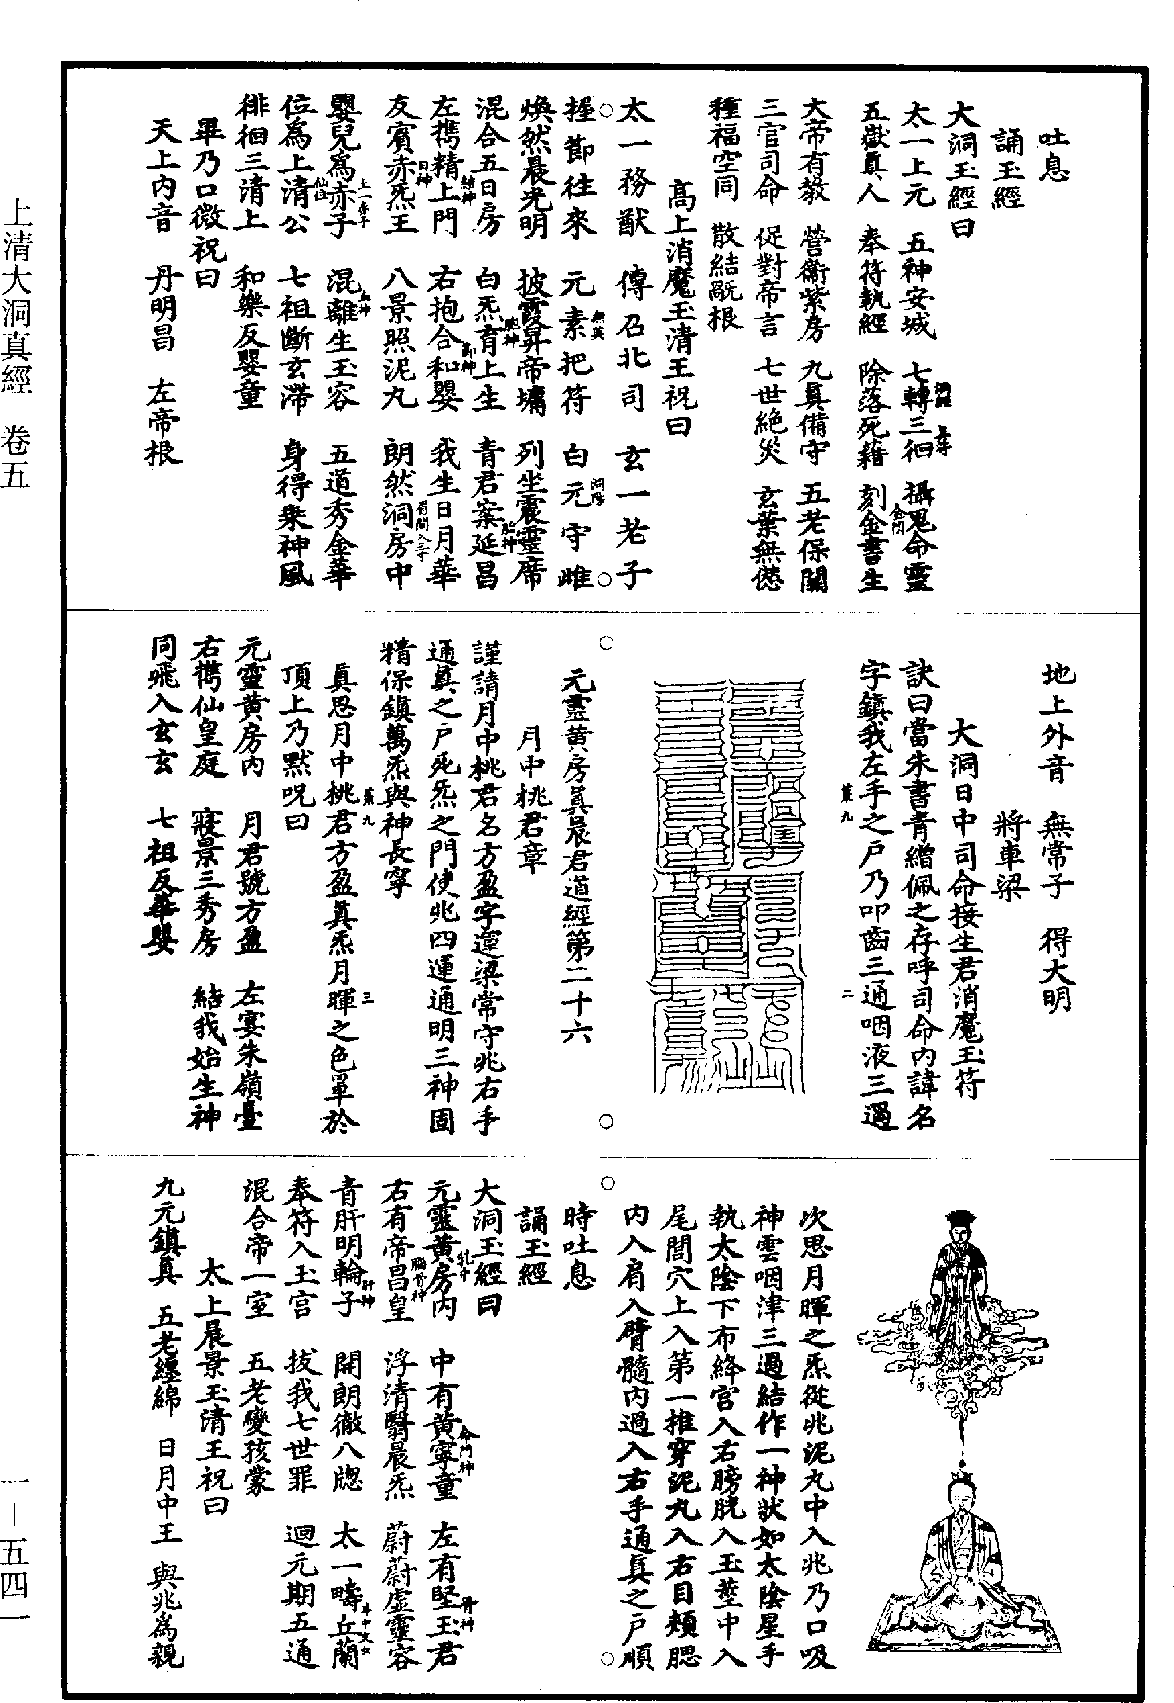 吐息
誦玉經
大洞玉經曰
太一上元　五神安城　七轉三徊　攝鬼命靈
五嶽真人　奉符執經　除落死藉　刻金書生
大帝有教　營衛紫房　九真備守　五老保關
三官司命　促對帝言　七世絕災　玄葉無愆
種福空同　散結翫根
高上消魔玉清王祝曰
太一務猷　傳召北司　玄一老子
握節往來　元素把符　白元守雌
煥然晨光明　披霞昇帝墉　列坐震靈席
混合五日房　白炁育上生　青君案延昌
左携精上門　右抱合和嬰　我生日月華
友賓赤炁王　八景照泥丸　朗然洞房中
嬰兒為赤子　混離生玉容　五道秀金華
位為上清公　七祖斷玄滯　身得乘神風
徘徊三清上　和樂反嬰童
畢乃口微祝曰
天上內音　丹明昌　左帝根
地上外音　無常子　得大明
將車梁
大洞日中司命接生君消魔玉符
訣曰當朱書青繒佩之存呼司命內諱名
字鎮我左手之戶乃叩齒三通咽液三過
元靈黃房真晨君道經第二十六
月中桃君章
謹請月中桃君名方盈字運梁常守兆右手
通真之戶死炁之門使兆四運通明三神固
精保鎮萬炁與神長寧
真思月中桃君方盈真炁月暉之色罩於
頂上乃默呪曰
元靈黃房內　月君號方盈　左宴朱嶺臺
右携仙皇庭　寢景三秀房　結我始生神
同飛入玄玄　七祖反華嬰
次思月暉之炁從兆泥丸中入兆乃口吸
神雲咽津三過結作一神狀如太陰星手
執太陰下布絳宮入右膀胱入玉莖中入
尾閭穴上入第一椎穿泥丸入右目頰腮
內入肩入臂髓內過入右手通真之戶順
時吐息
誦玉經
大洞玉經曰
元靈黃房內　中有黃寧童　左有堅玉君
右有帝昌皇　浮清翳晨炁　蔚蔚虛靈容
青肝明輪子　開朗徹八牕　太一疇丘蘭
奉符入玉宮　拔我七世罪　迴元期五通
混合帝一室　五老變孩蒙
太上晨景玉清王祝曰
九元鎮真　五老纏綿　日月中王　與兆為親
上清大洞真經　卷五
一—五四一